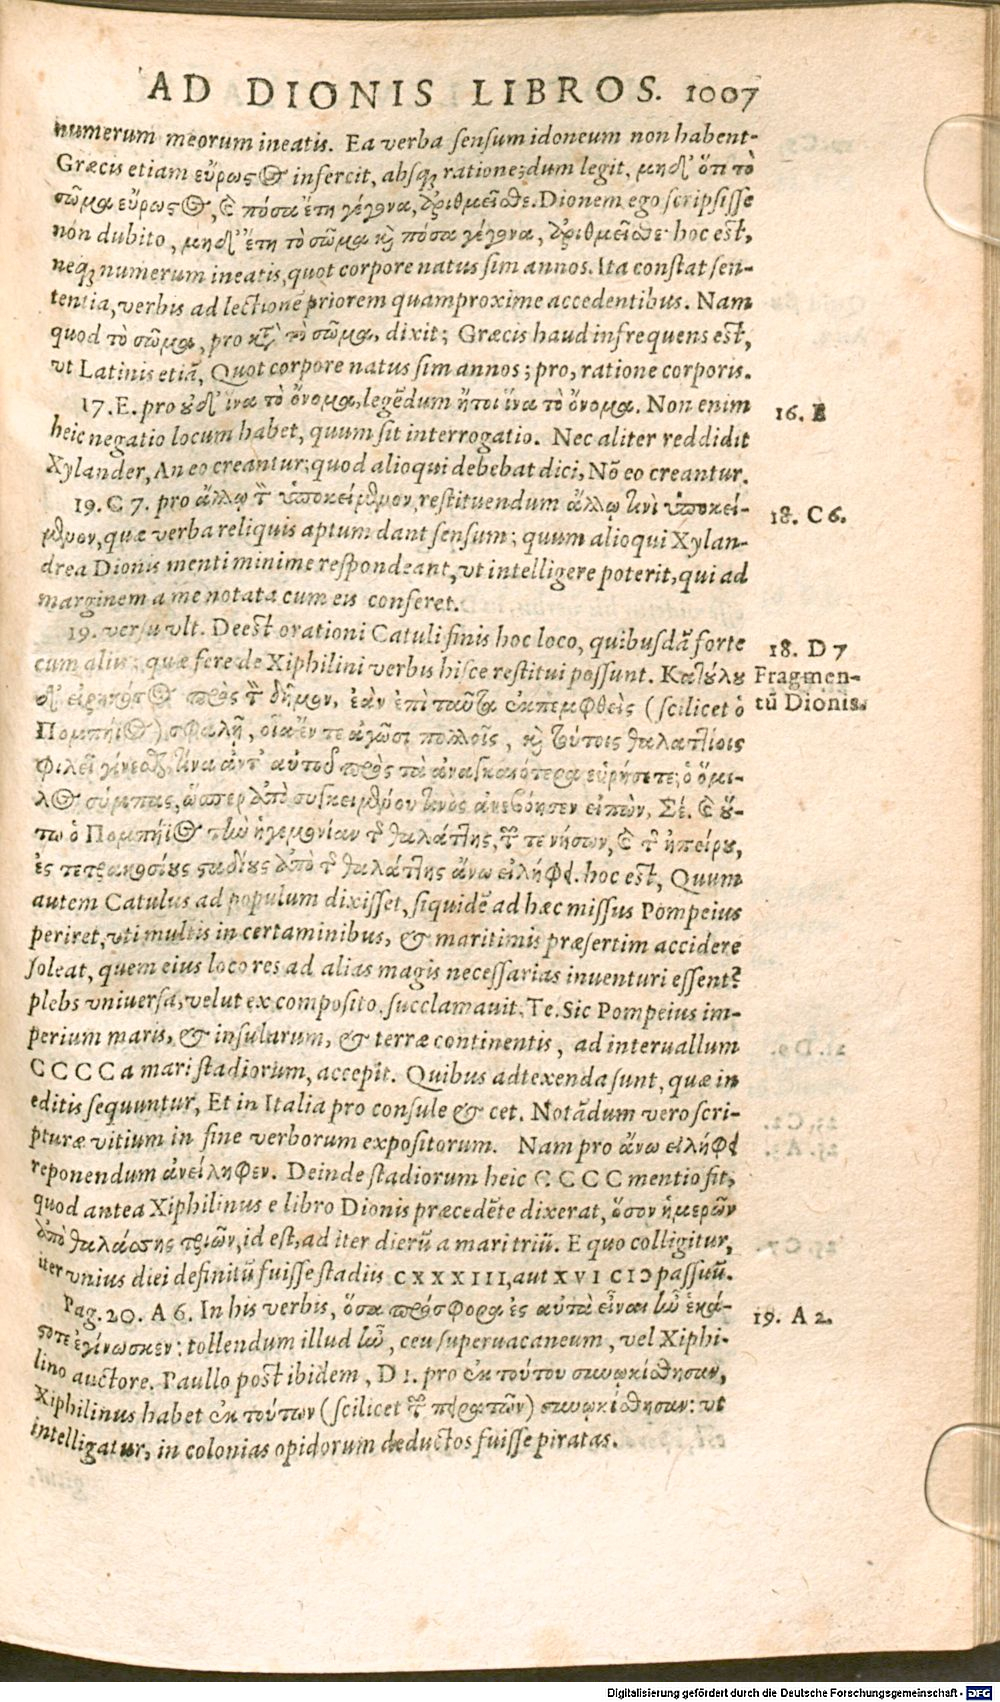 AD DIONIS LIBROS. 1007
numerum meorum ineatis. Ea verba sensum idoneum non habent.
Græcis etiam εὔρωςος insercit, absq; ratione; dum legit, μηδ' ὅτι τὸ
σῶμα εὔρωςος, ϗ πόσα ἔτη γέγονα, ἀριθμεῖσθε. Dionem ego scripsisse
non dubito, μηδ' ἔτη τὸ σῶμα ϗ πόσα γέγονα, ἀριθμεῖσθε· hoc est,
neq; numerum ineatis, quot corpore natus sim annos. Ita constat sen-
tentia, verbis ad lectionē priorem quamproxime accedentibus. Nam
quod τὸ σῶμα, pro κτ' τὸ σῶμα, dixit; Græcis haud infrequens est,
vt Latinis etiā, Quot corpore natus sim annos; pro, ratione corporis.
17. E. pro ȣδ' ἵνα τὸ ὄνομα, legēdum ἤτοι ἵνα τὸ ὄνομα. Non enim
heic negatio locum habet, quum sit interrogatio. Nec aliter reddidit
Xylander, An eo creantur; quod alioqui debebat dici, Nō eo creantur.
16. E
19. C 7. pro ἄλλῳ τ̃ ὑποκείμϸον, restituendum ἄλλῳ τινὶ ὑποκεί-
μϸον, quæ verba reliquis aptum dant sensum; quum alioqui Xylan-
drea Dionis menti minime respondeant, vt intelligere poterit, qui ad
marginem a me notata cum eis conferet.
18. C 6.
19. versu vlt. Deest orationi Catuli finis hoc loco, quibusdā forte
cum aliis; quæ fere de Xiphilini verbis hisce restitui possunt. Κατȣ́λȣ
δ' εἰρηκότος πρὸς τ̃ δῆμον, ἐὰν ἐπὶ ταῦτα ἐκπεμφθεὶς (scilicet ὁ
Πομπήϊος) σφαλῇ, οἷα ἔν τε ἀγῶσι πολλοῖς, ϗ τούτοις θαλαττίοις
φιλεῖ γίνεσθαι, τίνα ἀντ' αὐτοῦ πρὸς τὰ ἀναγκαιότερα εὑρήσετε; ὁ ὅμι-
λος σύμπας, ὥσπερ ἀπὸ συγκειμϸου τινὸς ἀνεβόησεν εἰπὼν, Σέ. ϗ ȣ̔́-
τω ὁ Πομπήϊος τὴν ἡγεμονίαν τ̃ θαλάττης, τ̃ τε νήσων, ϗ τ̃ ἠπείρȣ,
ἐς τετρακοσίȣς ςαδίȣς ἀπὸ τ̃ θαλάττης ἄνω εἰλήφει. hoc est, Quum
autem Catulus ad populum dixisset, siquidē ad hæc missus Pompeius
periret, vti multis in certaminibus, & maritimis præsertim accidere
soleat, quem eius loco res ad alias magis necessarias inventuri essent?
plebs vniversa, velut ex composito, succlamauit, Te. Sic Pompeius im-
perium maris, & insularum, & terræ continentis, ad interuallum
CCCC a mari stadiorum, accepit. Quibus adtexenda sunt, quæ in
editis sequuntur, Et in Italia pro consule & cet. Notādum vero scri-
pturæ vitium in fine verborum expositorum. Nam pro ἄνω εἰλήφει
reponendum ἀνείληφεν. Deinde stadiorum heic CCCC mentio fit,
quod antea Xiphilinus e libro Dionis præcedēte dixerat, ὅσον ἡμερῶν
ἀπὸ θαλάσσης τριῶν, id est, ad iter dierū a mari triū. E quo colligitur,
iter vnius diei definitū fuisse stadiis CXXXIII, aut XVI CIↃ passuū.
18. D 7
Fragmen-
tū Dionis.
Pag. 20. A 6. In his verbis, ὅσα πρόσφορα ἐς αὐτὰ εἶναι ἦν ἑκά-
ςοτε ἐγίνωσκεν: tollendum illud ἦν, ceu superuacaneum, vel Xiphi-
lino auctore. Paullo post ibidem, D 1. pro ἐκ τούτου συνῳκίσθησαν,
Xiphilinus habet ἐκ τούτων (scilicet τ̃ πειρατῶν) συνῳκίσθησαν: vt
intelligatur, in colonias opidorum deductos fuisse piratas.
19. A 2.
Digitalisierung gefördert durch die Deutsche Forschungsgemeinschaft - DFG